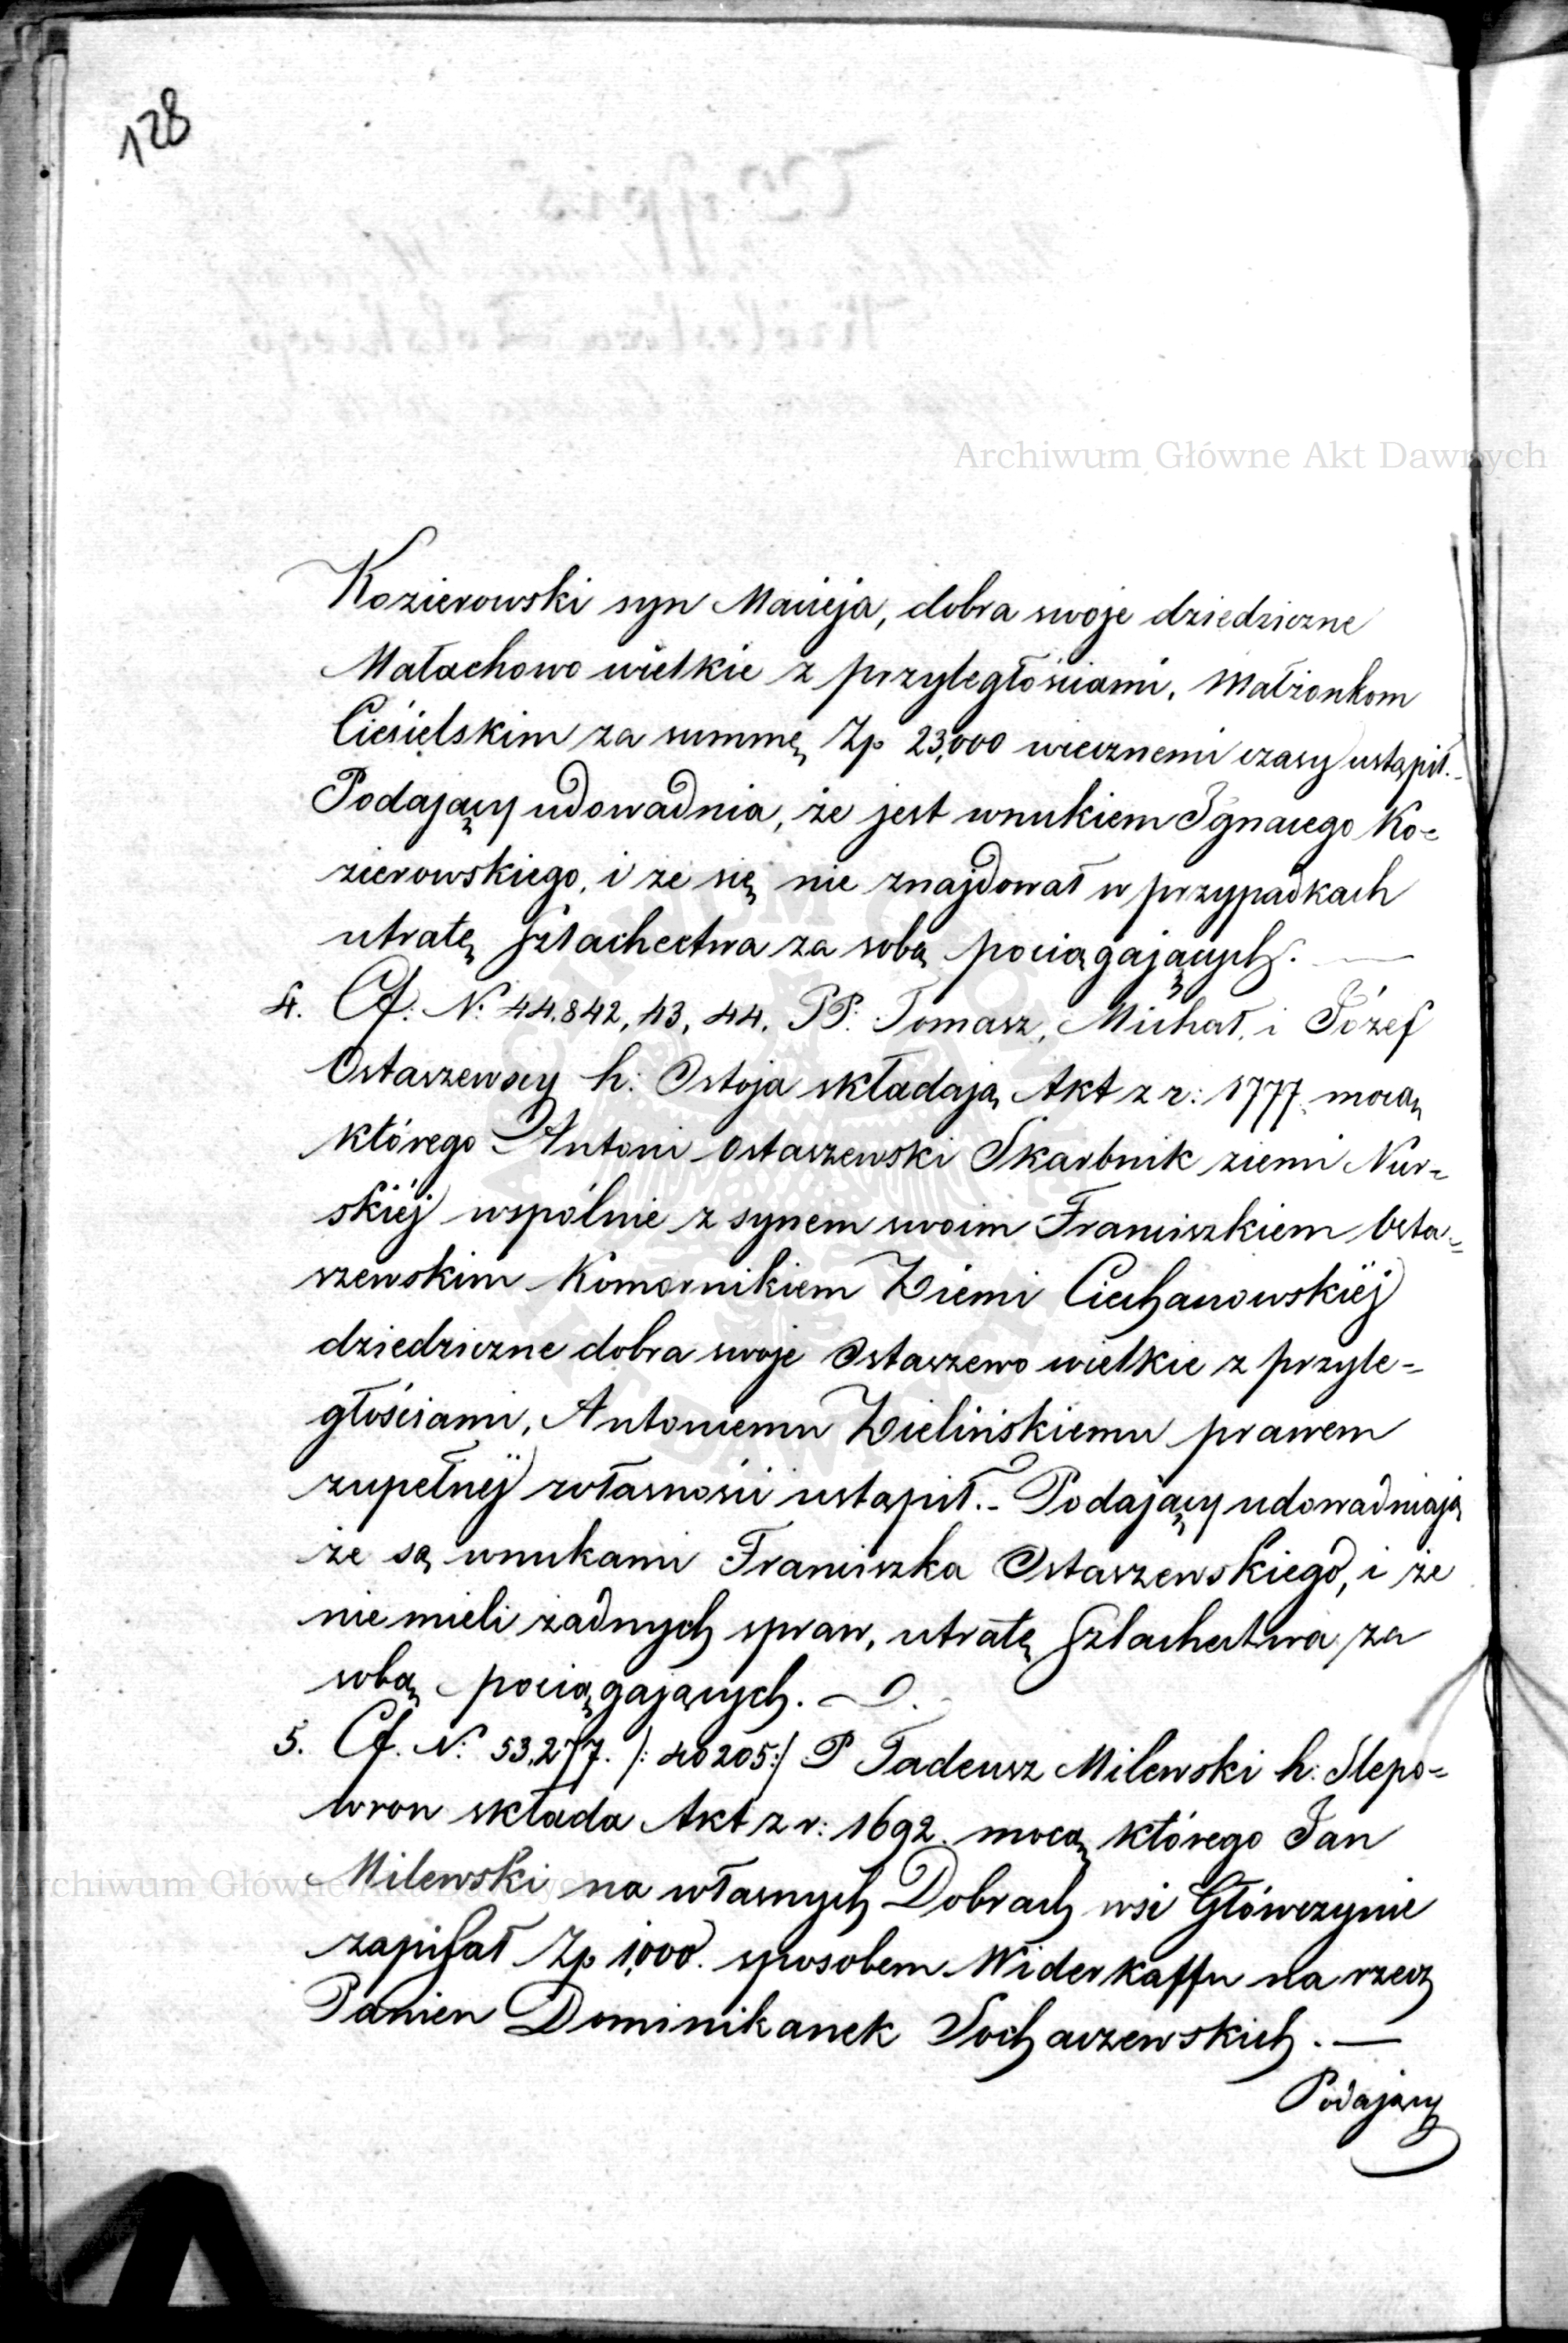 128
Archiwum Główne Akt Dawnych
Kozierowski syn Macieja, dobra swoje dziedziczne
Małachowo wielkie z przyległościami, Małżonkom
Ciesielskim za summę Zp 23,000 wiecznemi czasy ustąpił.-
Podający udowadnia, że jest wnukiem Ignacego Ko=
zierowskiego, i że się nie znajdował w przypadkach
utratę szlachectwa za sobą pociągających. —
4. Cf: N: 44.842, 43, 44. PP: Tomasz, Michał, i Józef
Ostaszewscy h: Ostoja składają Akt z r: 1777. mocą
którego Antoni Ostaszewski Skarbnik ziemi Nur=
skiéj wspólnie z synem swoim Franciszkiem Osta=
szewskim Komornikiem Ziemi Ciechanowskiéj
dziedziczne dobra swoje Ostaszewo wielkie z przyle=
głościami, Antoniemu Zielińskiemu prawem
zupełnéj własności ustąpił.- Podający udowadniają
że są wnukami Franciszka Ostaszewskiego, i że
nie mieli żadnych spraw, utratę szlachectwa za
sobą pociągających. —
5. Cf. N: 53,277. /: 40205:/ P Tadeusz Milewski h: Slepo=
wron składa Akt z r: 1692. mocą którego Jan
Milewski na własnych Dobrach wsi Główczynie
zapisał Zp 1,000. sposobem Widerkaffu na rzecz
Panien Dominikanek Sochaczewskich. —
Podający